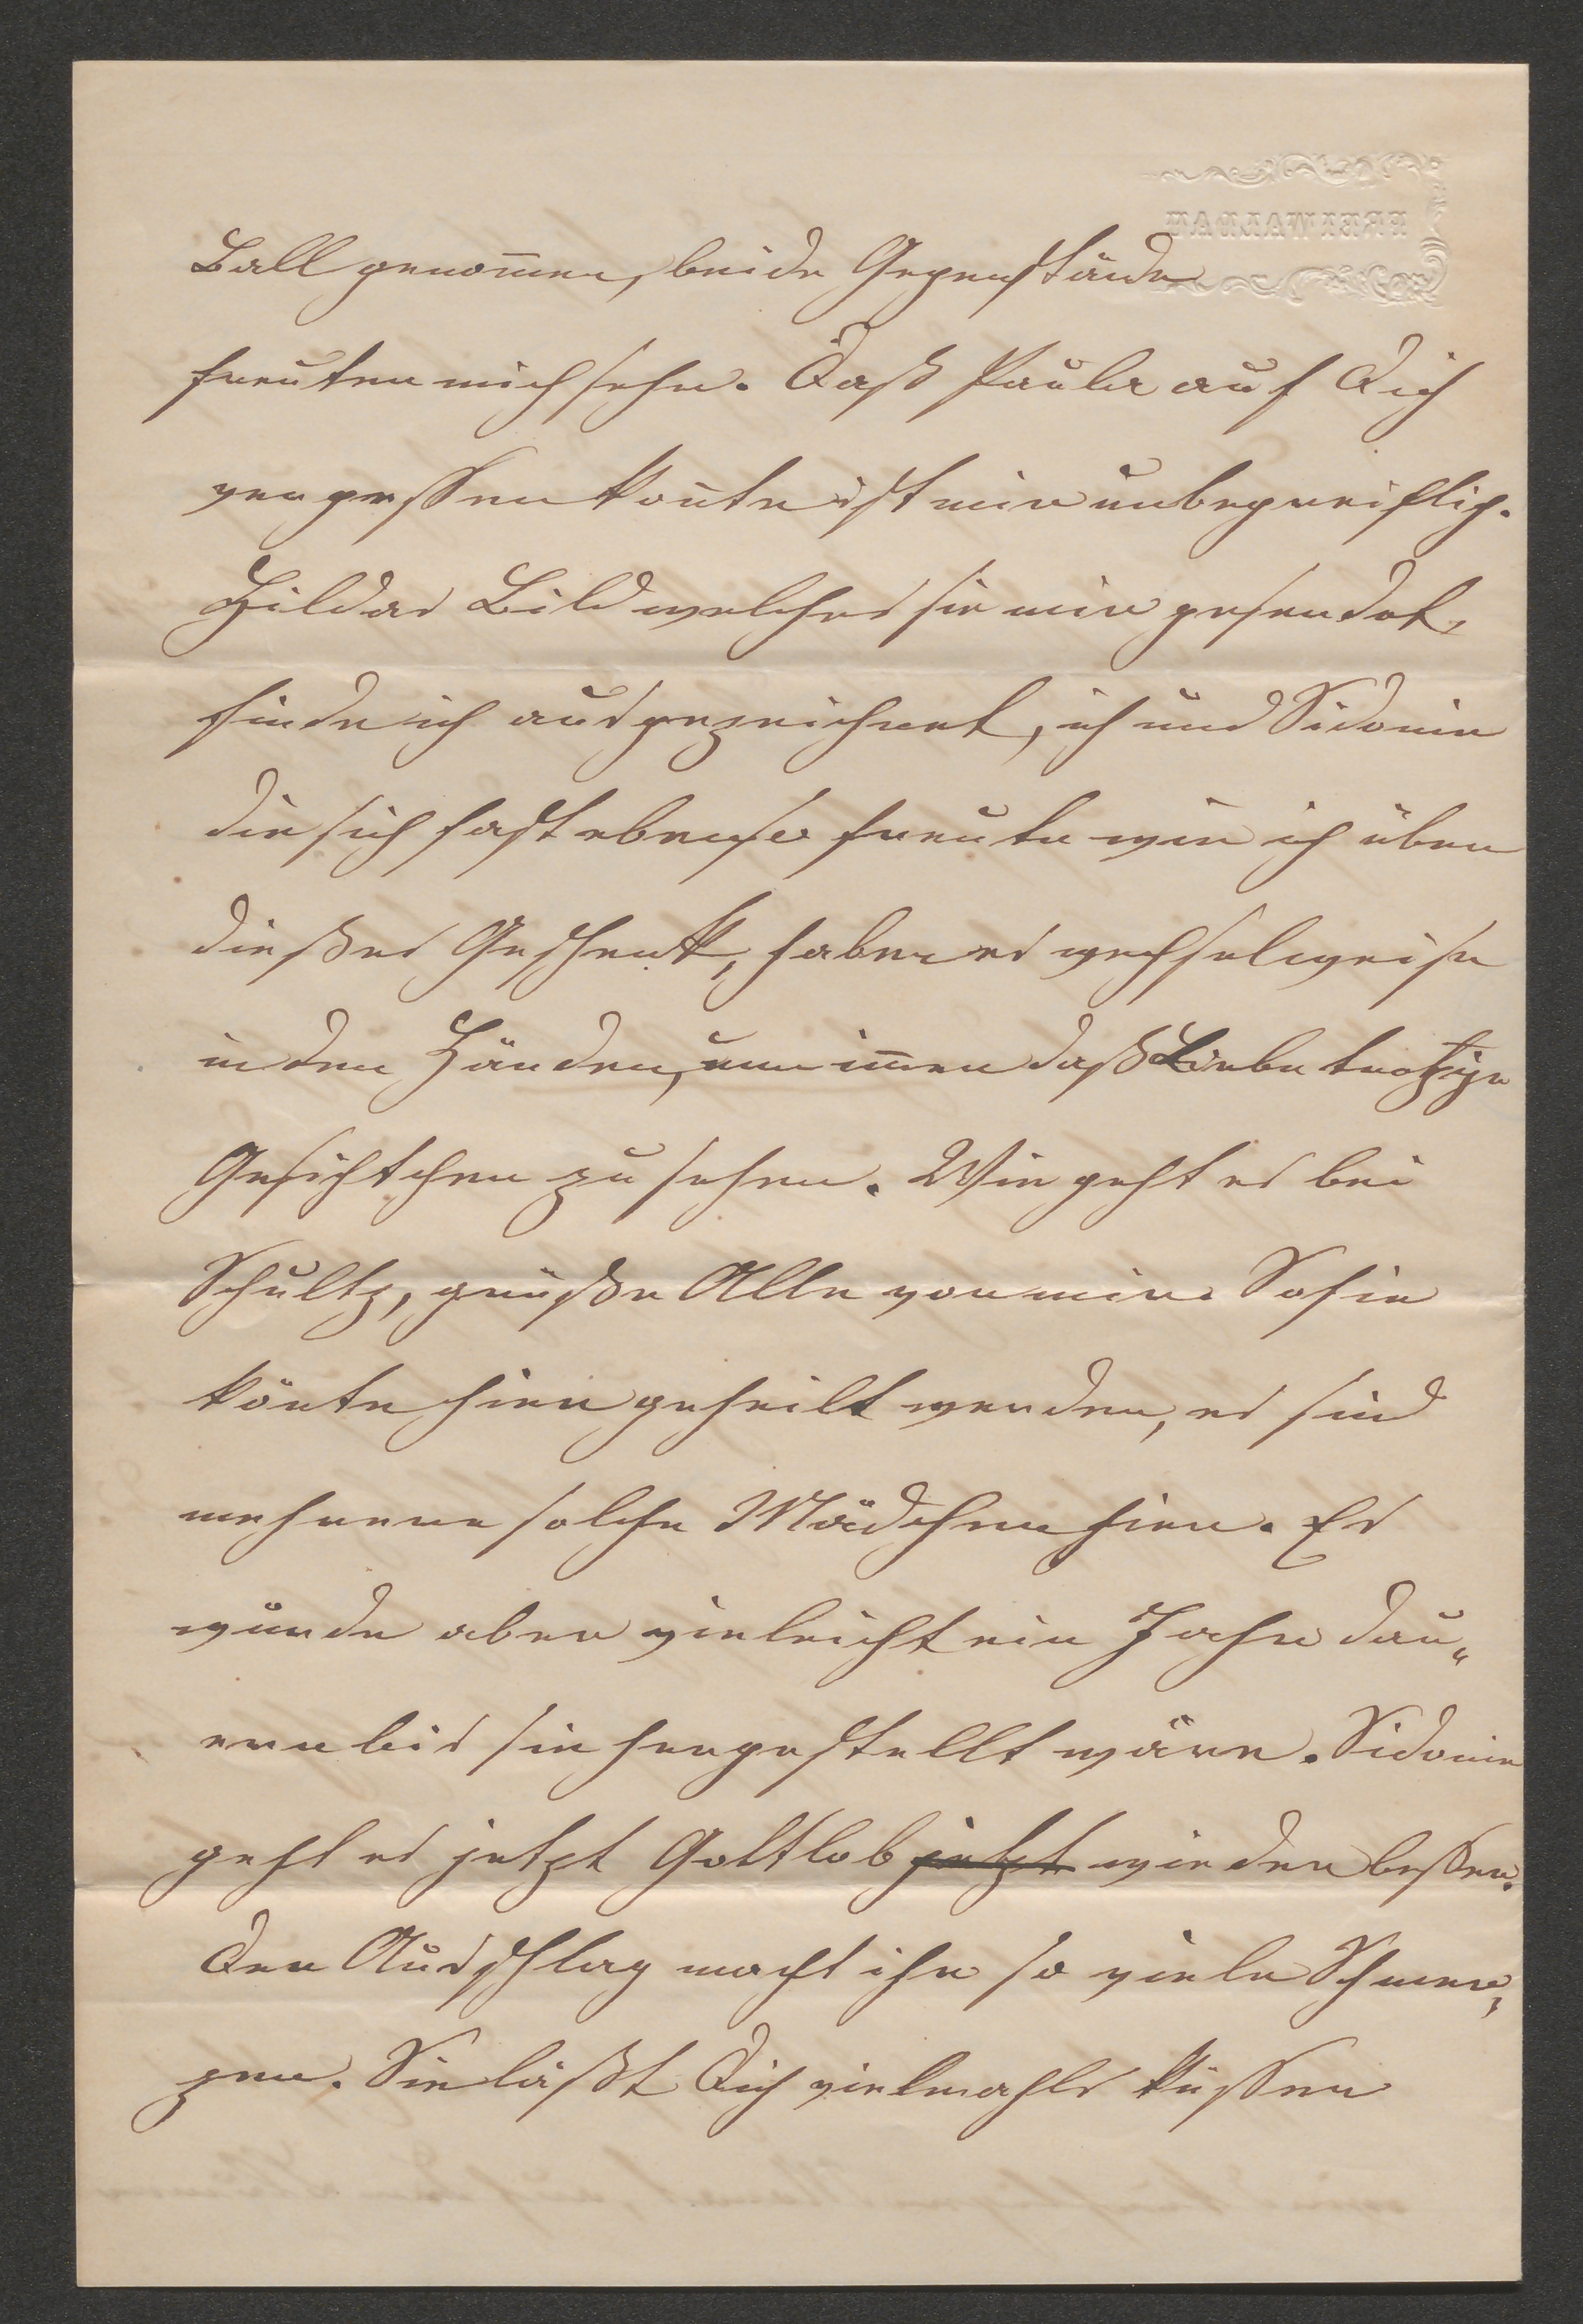 FREIWALDAU
Ball genom̄en, beide Gegenstände
freuten mich sehr. Daß Paula auf Dich
vergessen kon̄te ist mir unbegreiflich.
Hildas Bild welches sie mir gesendet,
finde ich ausgezeichnet, ich und Sidonie
die sich fast ebenso freute wie ich über
dießes Geschenk, haben es wechselweise
in den Händen, um im̄er daß Liebe trotzige
Gesichtchen zu sehen. Wie geht es bei
Schultz, grüße Alle von mir. Sofie
kön̄te hier geheilt werden, es sind
mehrere solche Mädchen hier. Es
würde aber vieleicht ein Jahr dau„
ern bis sie hergestellt wäre. Sidonie
geht es jetzt Gottlob jetzt wieder beßer.
Der Ausschlag macht ihr so viele Schmer„
zen. Sie läßt Dich vielmahls küssen